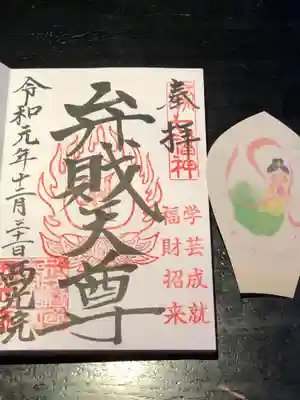 奉拝
学芸成就
福財招来
弁財天尊
令和元年十二月三十一日